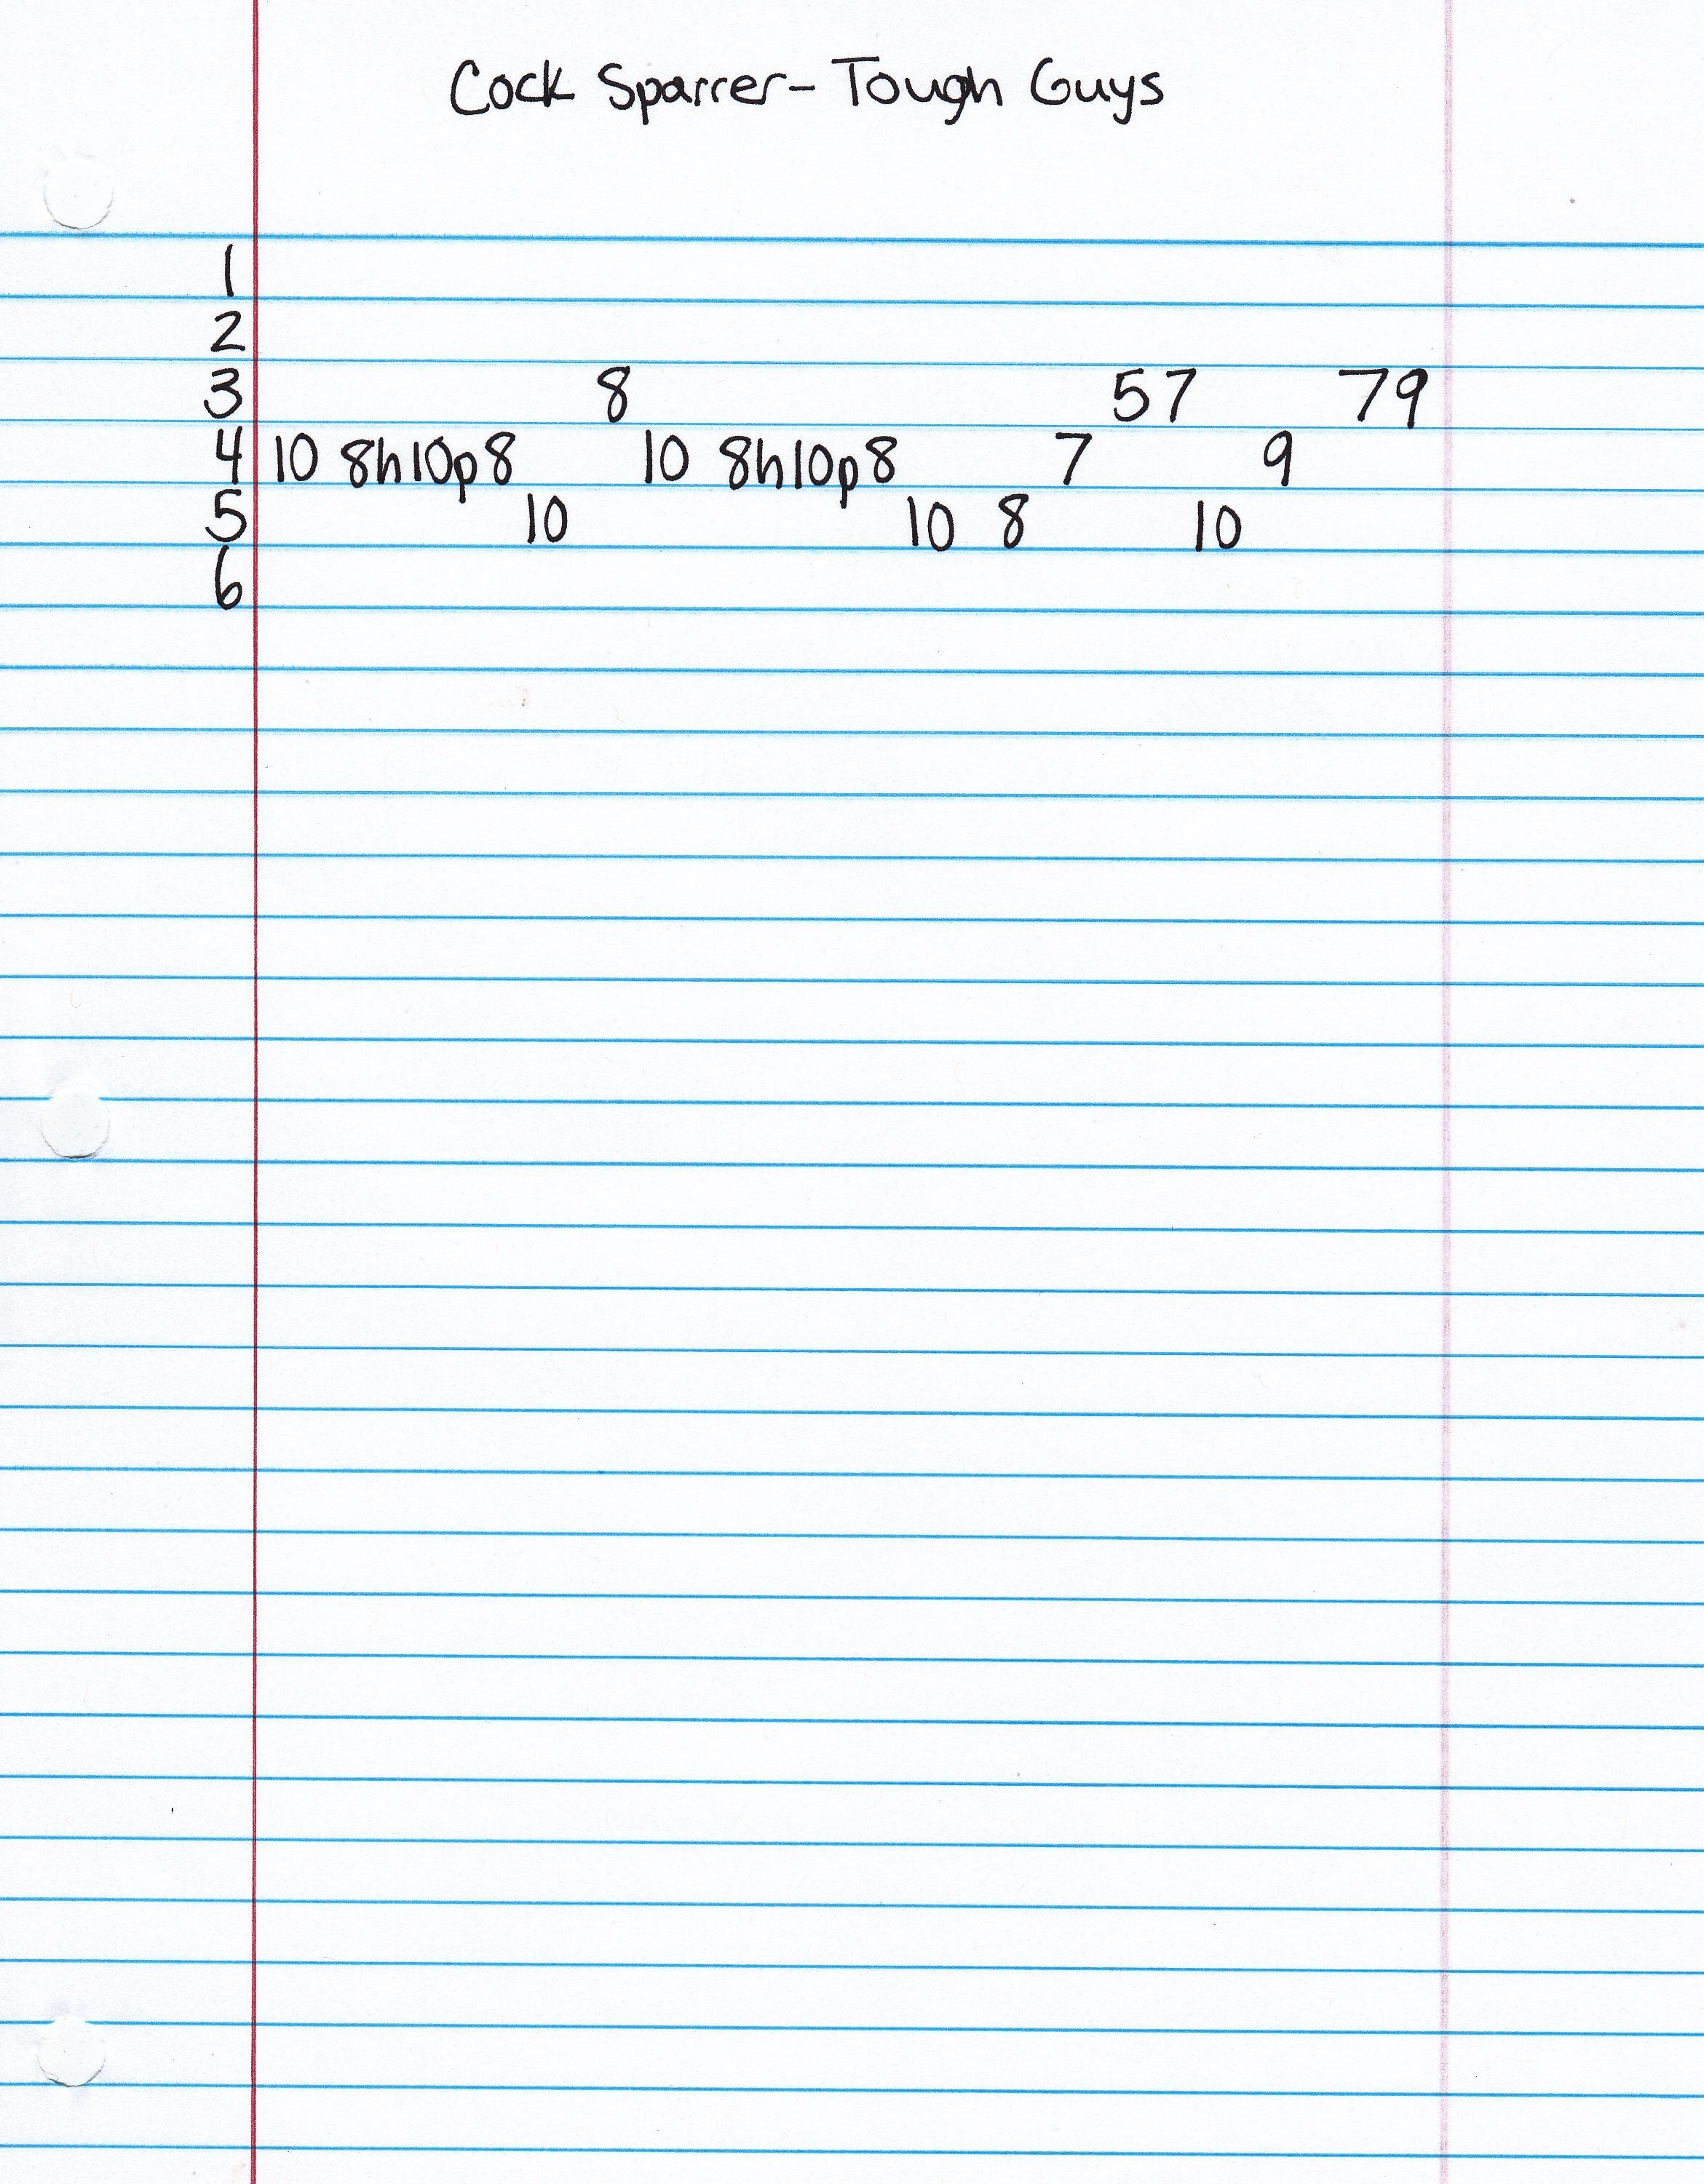 Cock Sparrer- Tough Guys
1
2
3 8 57 79
4 10 8h10p8 10 8h10p8 7 9
5 10 10 8 10
6